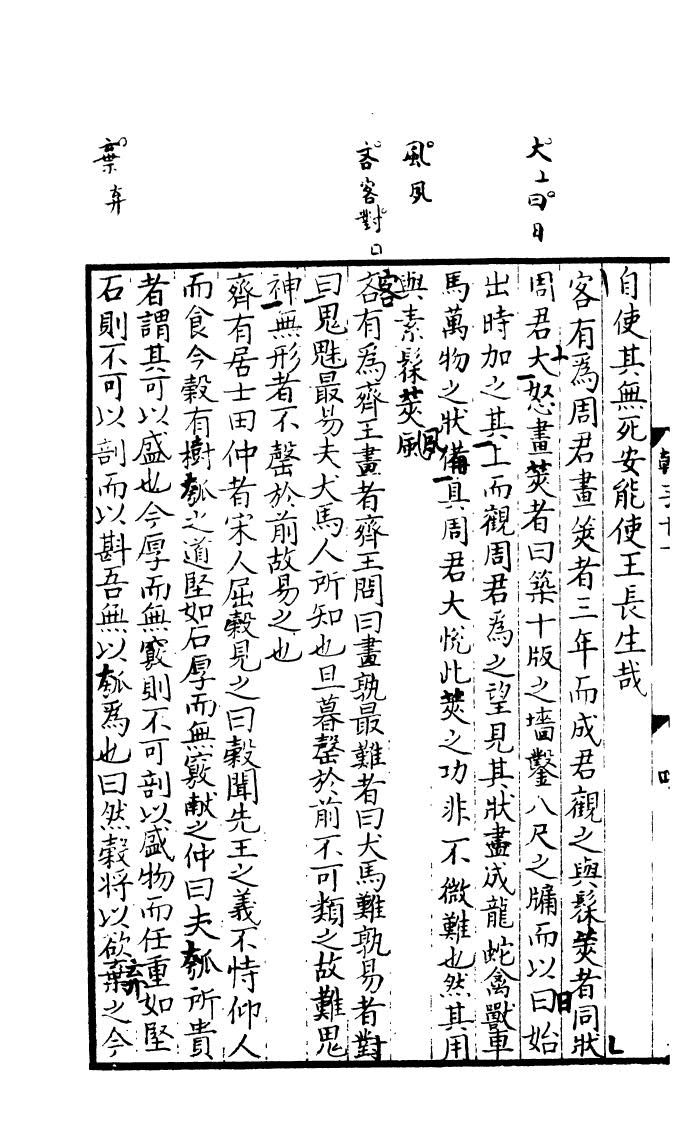 大上曰日
風夙
㕦客對曰
棄弃
自使其無死安能使王長生哉
客有爲周君畫莢者三年而成君觀之與髹莢者同狀
周君大怒畫莢者曰築十版之墻鑿八尺之牖而以曰始
日
出時加之其上而觀周君爲之望見其狀盡成龍蛇禽獸車
馬萬物之狀備具周君大悅此莢之功非不微難也然其用
與素髹莢風
夙
客有爲齊王畫者齊王問曰畫孰最難者曰犬馬難孰易者對
客
曰鬼魅最易夫犬馬人所知也旦暮罄於前不可類之故難鬼
神無形者不罄於前故易之也
齊有居士田仲者宋人屈穀見之曰穀聞先王之義不恃仰人
而食今穀有樹瓠之道堅如石厚而無竅献之仲曰夫瓠所貴
者謂其可以盛也今厚而無竅則不可剖以盛物而任重如堅
石則不可以剖而以斟吾無以瓠爲也曰然穀将以欲棄之今
弃